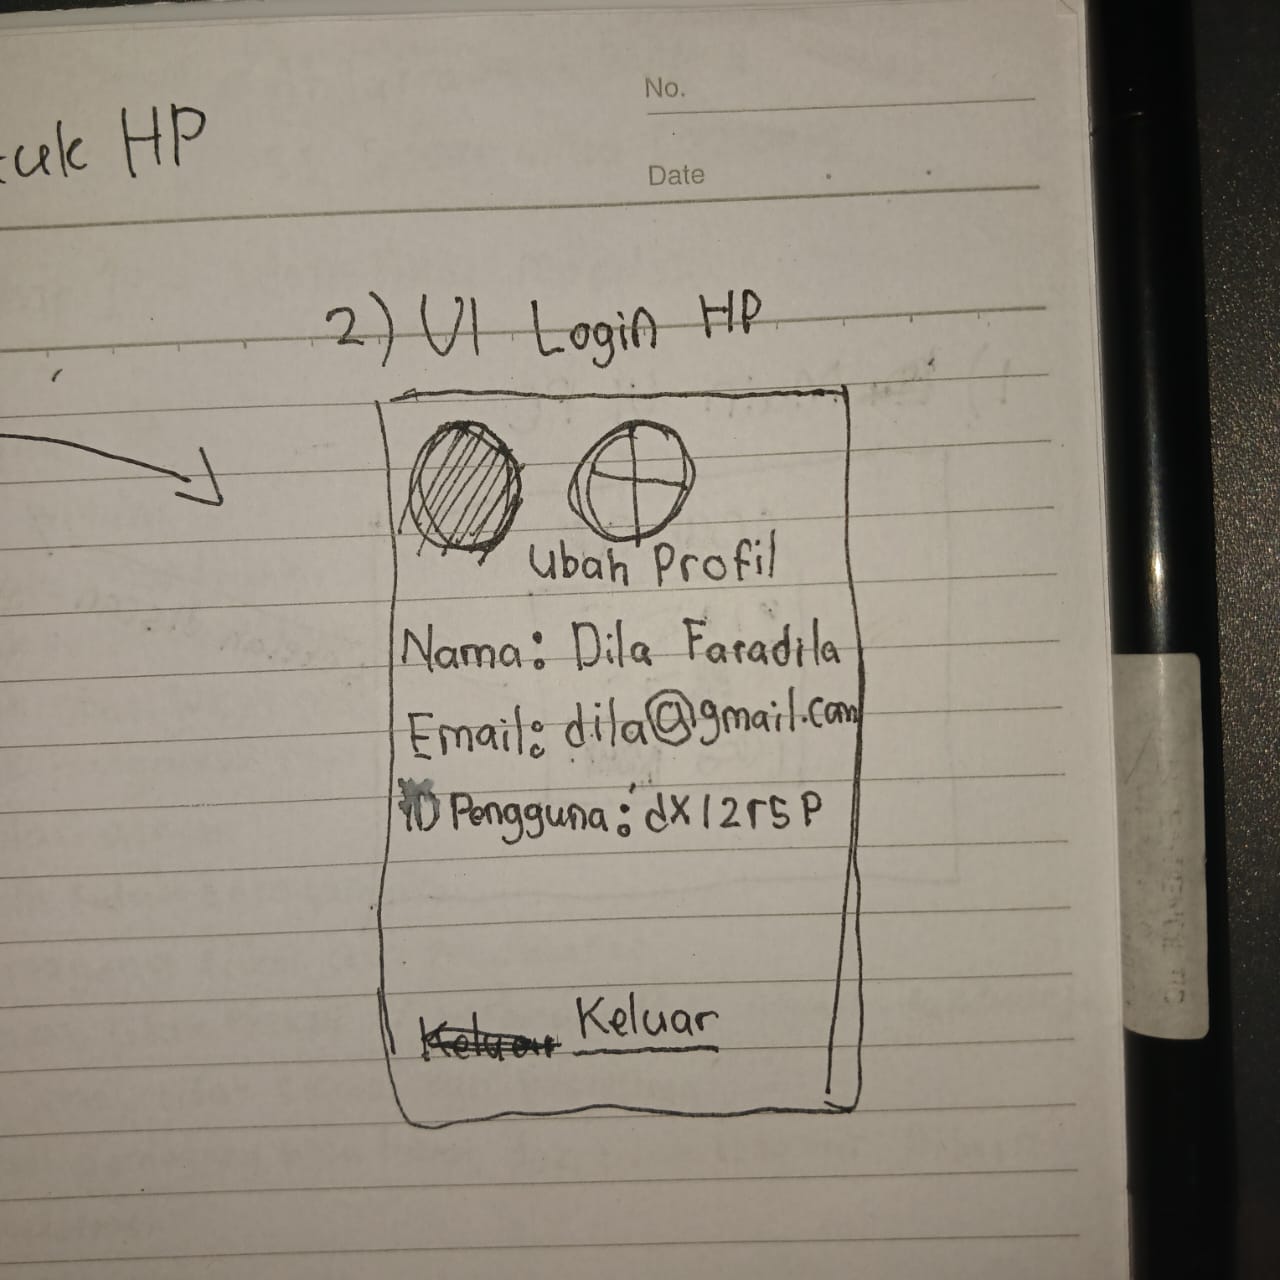 No.
HP
Date
2) UI Login HP
Ubah Profil
Nama: Dila Faradila
Email: dila@gmail.com
ID Pengguna: dX12r5P
Keluar